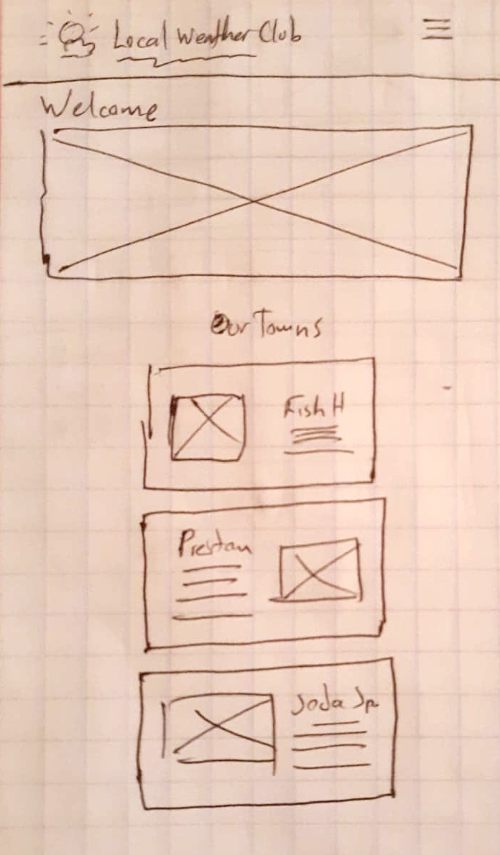 Local Weather Club
Welcome
Our Towns
Fish H
Preston
Soda Sp